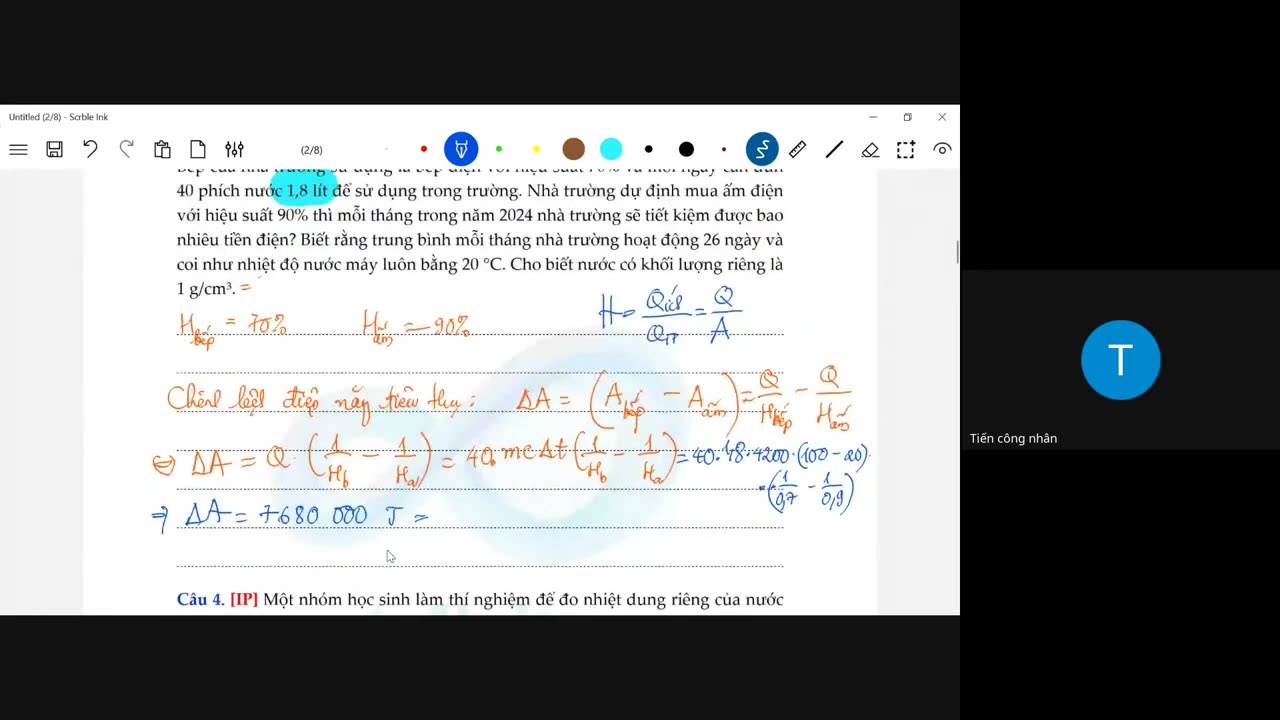 Untitled (2/8) - Scrble Ink
(2/8)
Bếp của nhà trường sử dụng là bếp điện với hiệu suất 70% và mỗi ngày cần đun
40 phích nước 1,8 lít để sử dụng trong trường. Nhà trường dự định mua ấm điện
với hiệu suất 90% thì mỗi tháng trong năm 2024 nhà trường sẽ tiết kiệm được bao
nhiêu tiền điện? Biết rằng trung bình mỗi tháng nhà trường hoạt động 26 ngày và
coi như nhiệt độ nước máy luôn bằng 20 °C. Cho biết nước có khối lượng riêng là
1 g/cm³. =
H bếp = 70% H ấm = 90% H = Q ích / Q TP = Q / A
Chênh lệch điện năng tiêu thụ: ΔA = (A bếp − A ấm) = Q / H bếp − Q / H ấm
⇔ ΔA = Q. (1/H b − 1/H a) = 40.mcΔt (1/H b − 1/H a) = 40.1,8.4200.(100 − 20).
.(1/0,7 − 1/0,9)
⇒ ΔA = 7680 000 J =
Câu 4. [IP] Một nhóm học sinh làm thí nghiệm để đo nhiệt dung riêng của nước
T
Tiến công nhân